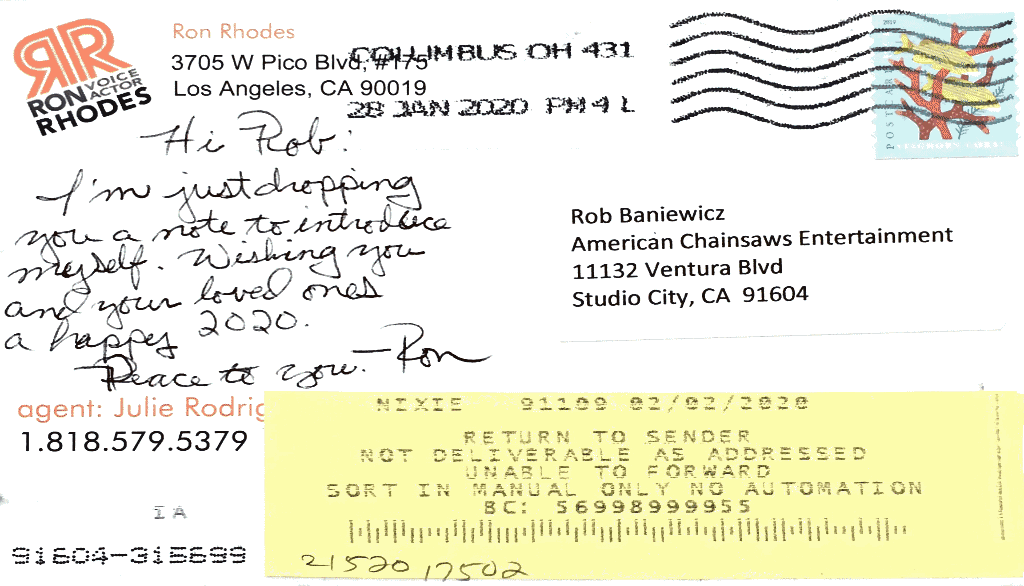 RR
RON VOICE ACTOR
RHODES
Ron Rhodes
3705 W Pico Blvd, #175
Los Angeles, CA 90019
COLUMBUS OH 431
28 JAN 2020 PM 4 L
2019
POSTCARD
Hi Rob:
I'm just dropping
you a note to introduce
myself. Wishing you
and your loved ones
a happy 2020.
Peace to you. —Ron
Rob Baniewicz
American Chainsaws Entertainment
11132 Ventura Blvd
Studio City, CA 91604
agent: Julie Rodrig
1.818.579.5379
NIXIE 91109 02/02/2020
RETURN TO SENDER
NOT DELIVERABLE AS ADDRESSED
UNABLE TO FORWARD
SORT IN MANUAL ONLY NO AUTOMATION
BC: 56998999955
IA
91604-315699
21520 17502